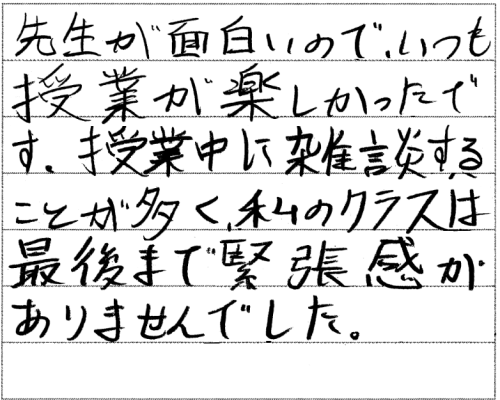 先生が面白いので、いつも
授業が楽しかったで
す。授業中に雑談する
ことが多く、私のクラスは
最後まで緊張感が
ありませんでした。